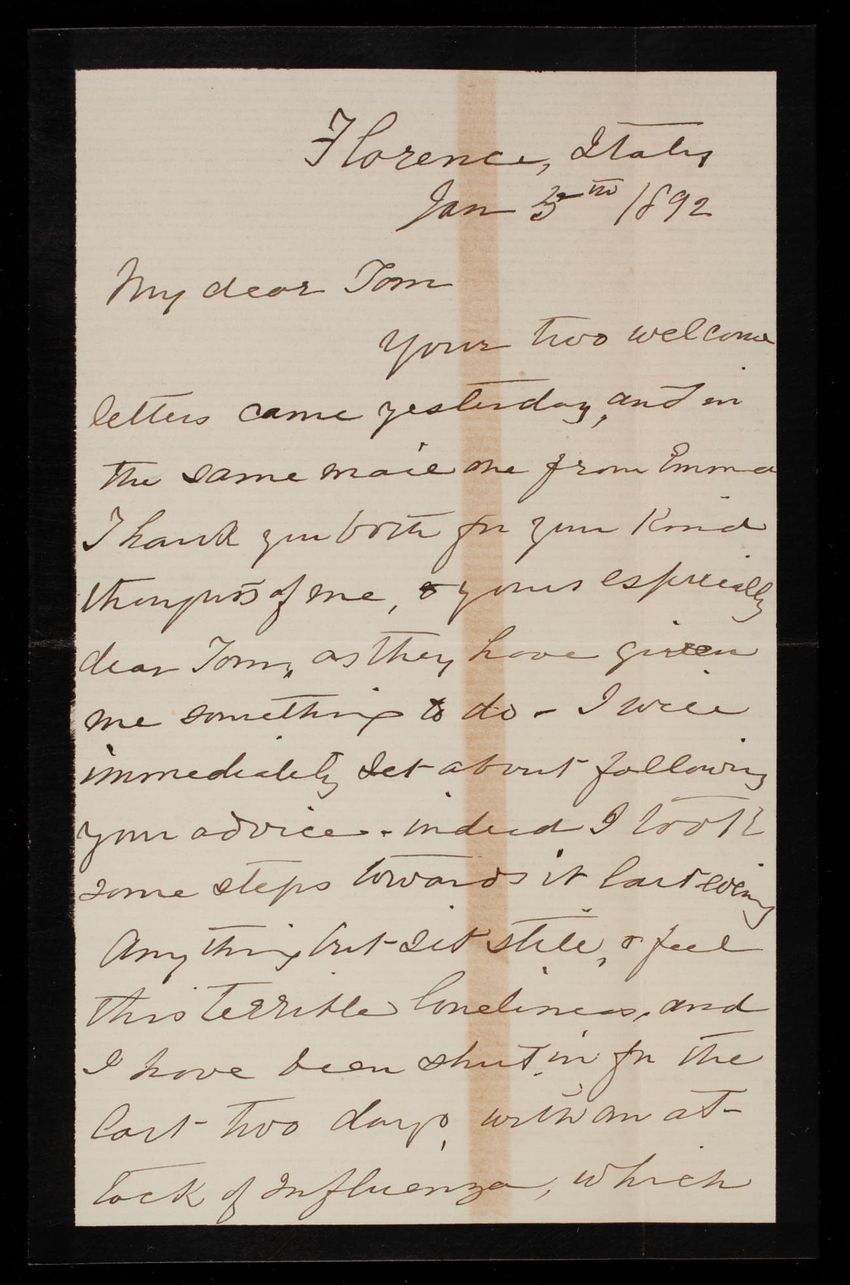 Florence, Italy
Jan 5th 1892
My dear Tom
Your two welcome
letters came yesterday, and in
the same mail one from Emma
I hank you both for your kind
thoughts of me, & yours especially
dear Tom, as they have given
me something to do - I will
immediately set about following
your advice - indeed I took
some steps towards it last eveing
Anything but sit still, & feel
this terrible loneliness, and
I have been shut in for the
last two days, with an at-
tack of Influenza, which